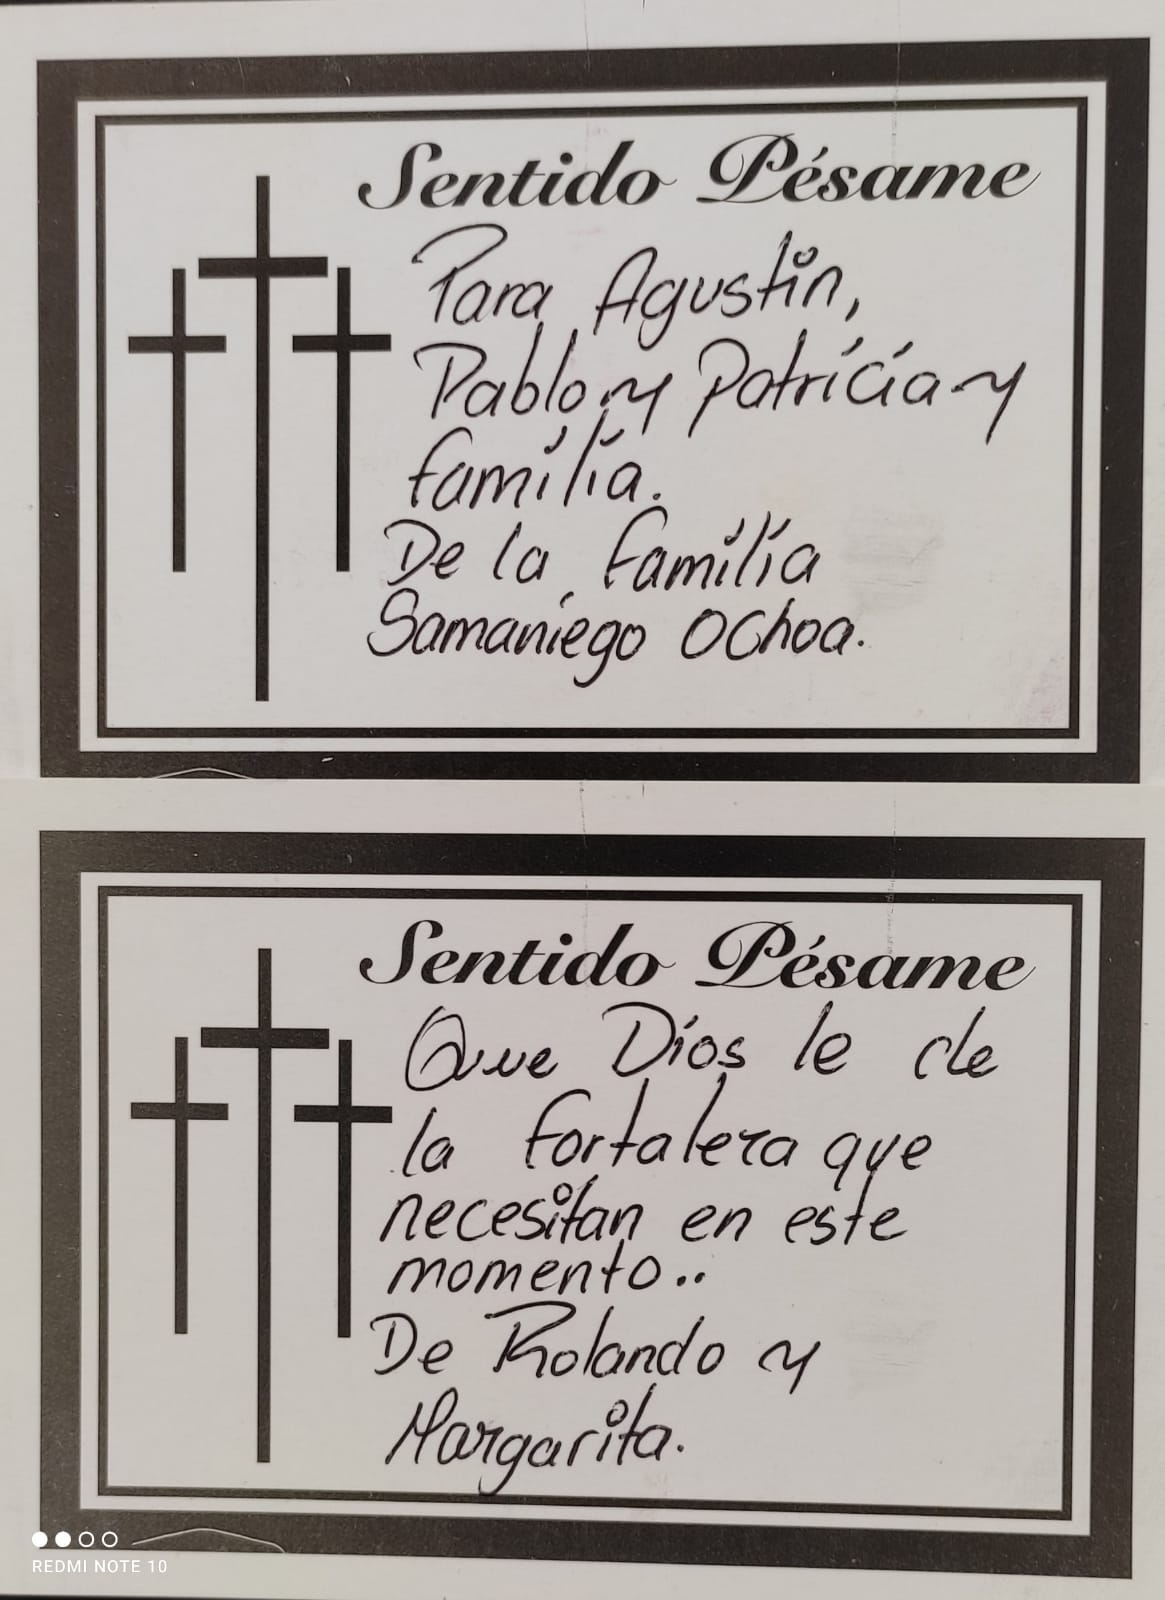 Sentido Pésame
Para Agustin,
Pablo y Patricia y
familia.
De la familia
Samaniego Ochoa.
Sentido Pésame
Que Dios le de
la fortaleza que
necesitan en este
momento..
De Rolando y
Margarita.
REDMI NOTE 10